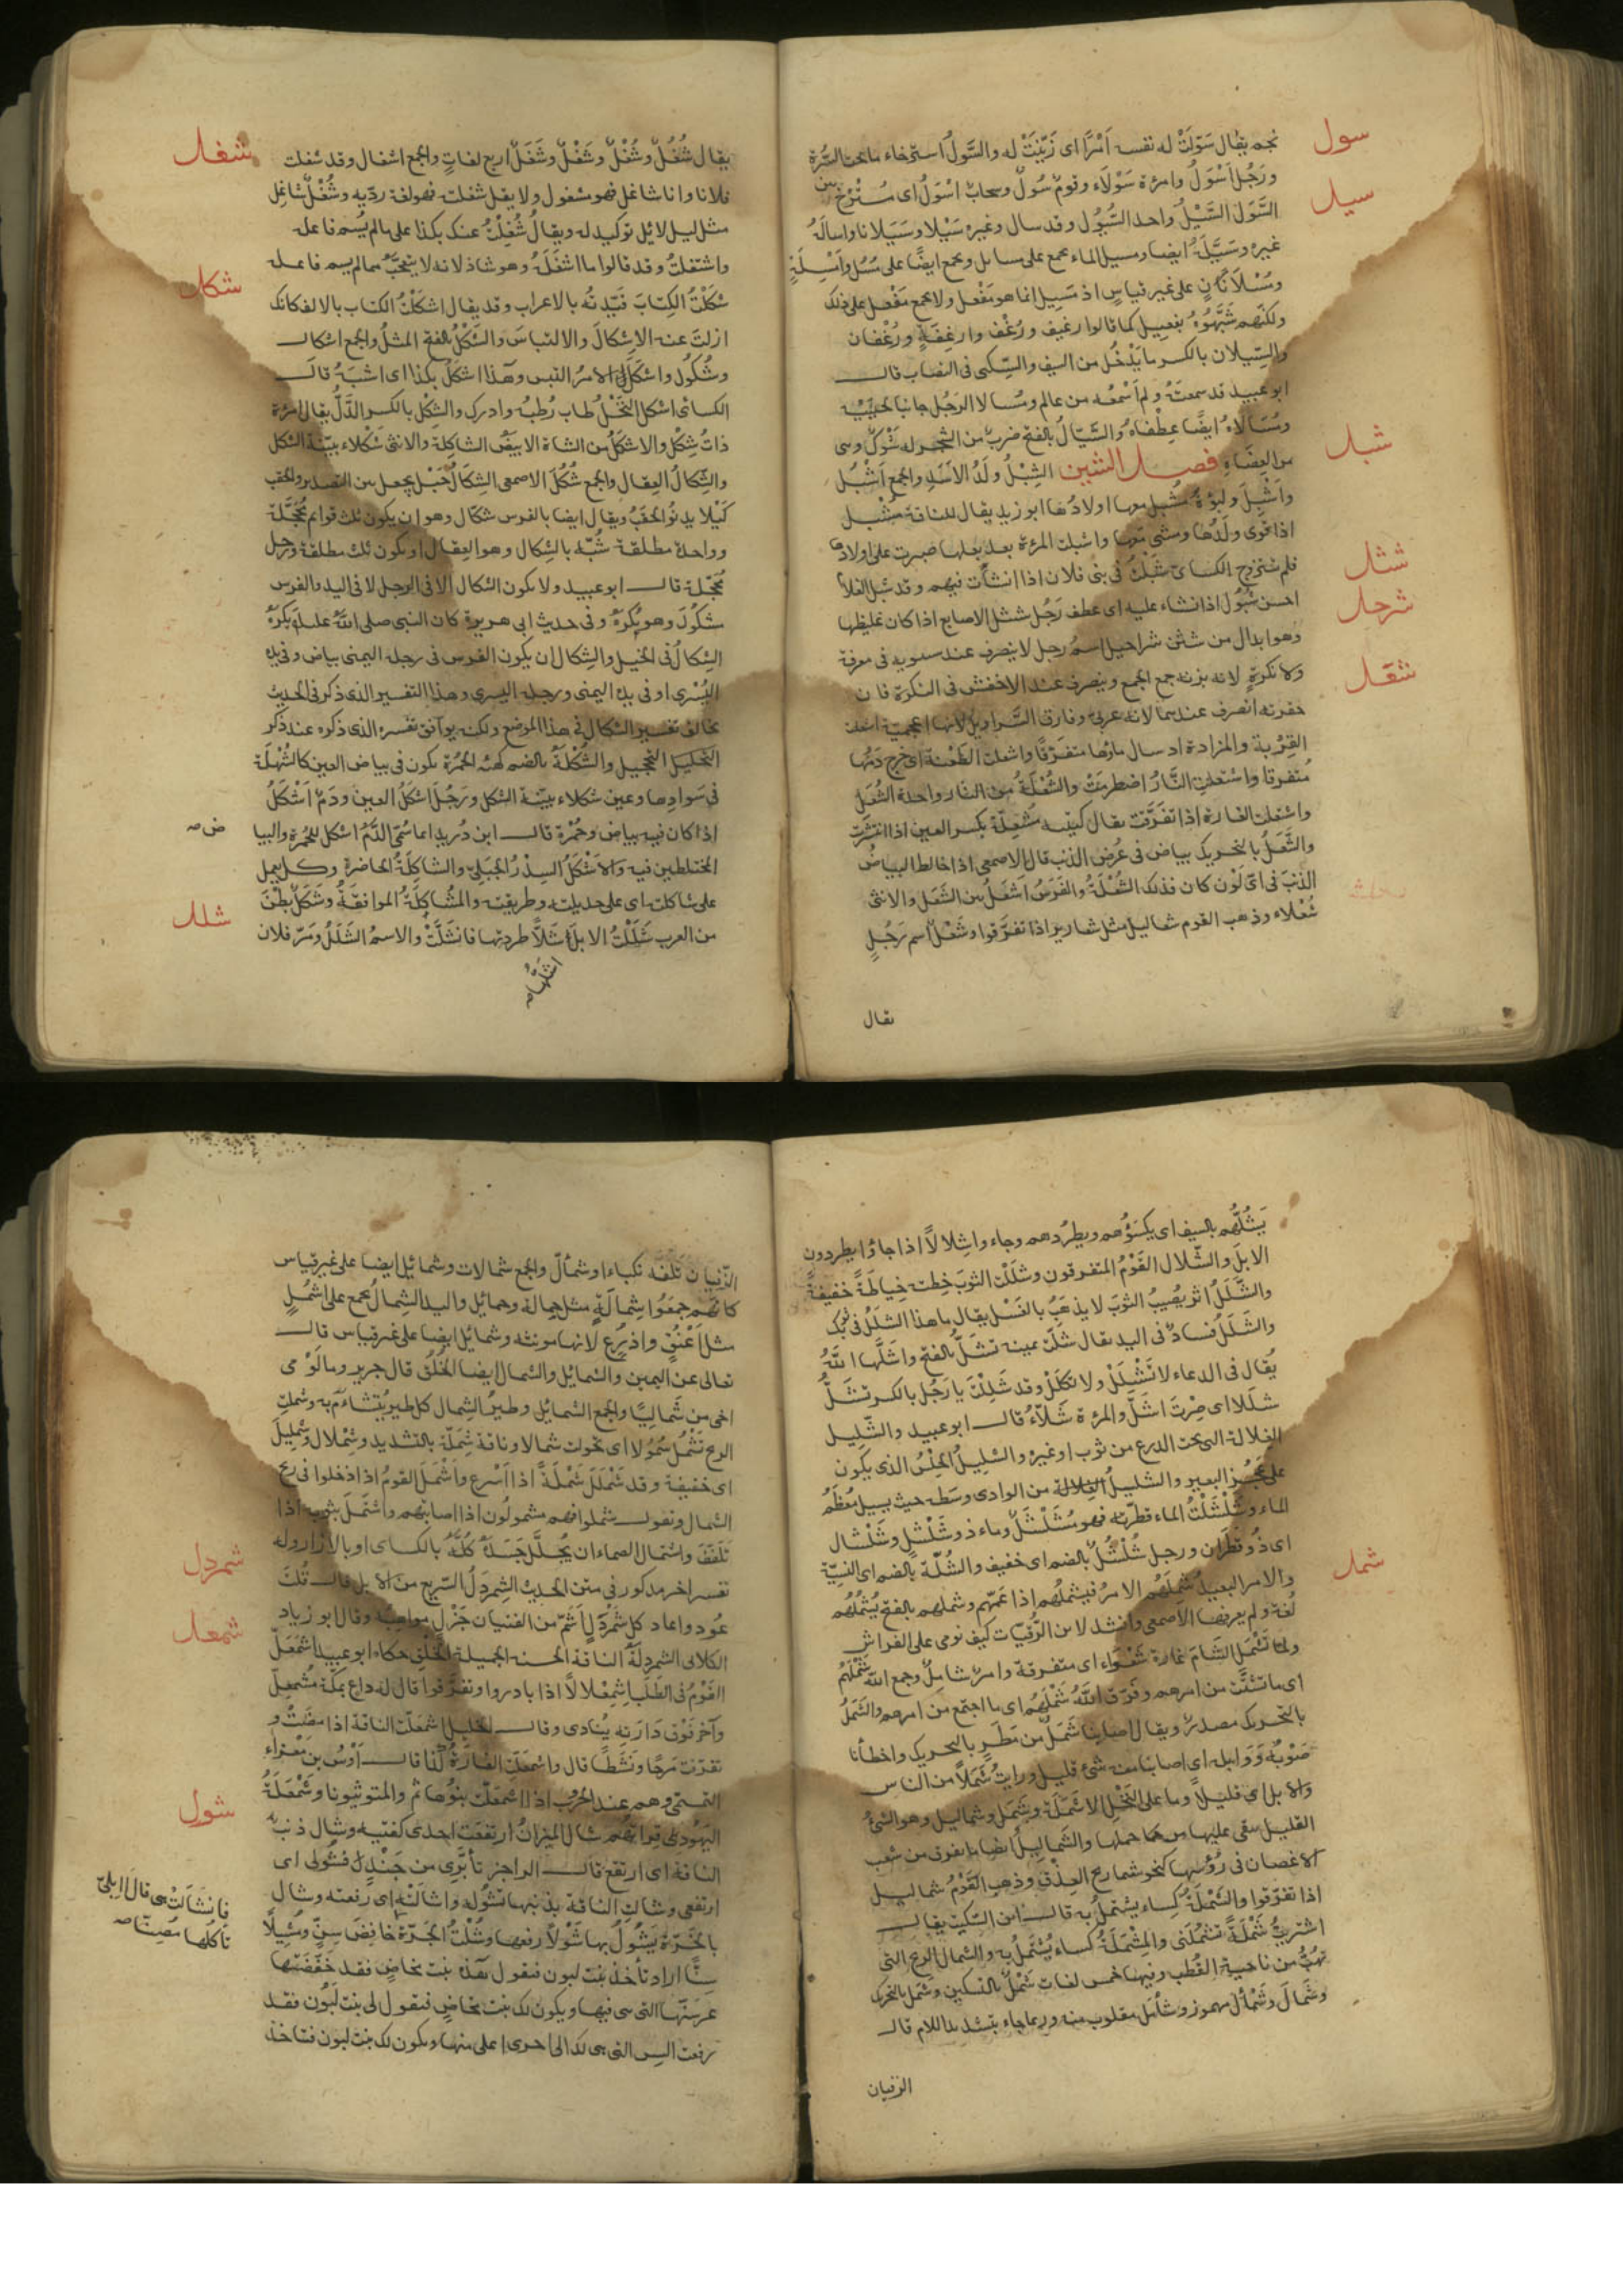 سول
نجم يقال سَوَّلَتْ له نفسه اَمْرًا اى زَيَّنَتْ له والسَّوَلُ استرخاء ما تحت السُّرة
ورَجُلٌ اَسْوَلُ وامرءة سَوْلاَء وقومٌ سُولٌ وسحابٌ اَسْوَلُ اى مُسْتَرْخٍ بين
سيل
السَّوَل السَّيْلُ واحد السُّيُول وقد سال وغيره سَيْلا وسَيَلانا واسالَهُ
غيره وسَيَّلَهُ ايضا ومسيل الماء يجمع على مسايل ويجمع ايضًا على مُسُل واَمْسِلَةٍ
ومُسْلاَنٍ على غير قياسٍ اذ مَسِيل انما هو مَفْعِل ولا يجمع مَفْعِل على ذلك
ولكنهم شَبَّهُوهُ بفعيل كما قالوا رغيف ورُغُف وارغِفَةٍ ورُغْفان
والسِّيلان بالكسر ما يَدْخُل من السيف والسّكين فى النصاب قال
ابو عبيد قد سمعتُهُ ولم اَسْمعْه من عالم ومُسالا الرجُل جانبا لحيَتِه
ومُسَالاَهُ ايضًا عِطْفَاهُ والسَّيَالُ بالفتح ضربٌ من الشجر له شَوْكٌ وهى
شبل
من العِضَاهِ فصل الشين الشِبْلُ ولَدُ الأَسَدِ والجمع اَشْبُل
واَشْبِل ولبُؤةٌ مُشْبِل معها اولادُها ابو زيد يقال للناقة مُشْبِل
اذا قوى ولدُها ومشى معها واشبلت المرءة بعد بعلها صبرت على اولادها
فلم تتزوج الكسائى شَبَلْتُ فى بنى فلان اذا نشأت فيهم وقد شبل الغلام
شثل
احسن شُبُول اذا نشاء عليه اى عطف رَجُل شثل الاصابع اذا كان غليظها
شرحل
وهو ابدال من شثن شراحيل اسمُ رجل لا ينصرف عند سيبويه فى معرفة
ولا نكرةٍ لانه بزنه جمع الجمع وينصرف عند الاخفش فى النكرة فان
شعل
حقرته انصرف عندهما لانه عربى وفارق السَّراويل لانها اعجمية اشعلت
القِرْبة والمزادة اذ سال ماؤها متفرّقًا واشعلت الطَعْنة اى خرج دَمُها
مُتفرقا واشتعلت النَّارُ اضطرمَتْ والشُعْلَةُ من النار واحدة الشُعَلِ
واشعلت الغارة اذا تفرّقت يقال كتيبه مُشْعِلَةٌ بكسر العين اذا انتشرت
والشَّعَلُ بالتحريك بياض فى عُرْض الذنب قال الاصمعى اذا خالط البياضُ
الذنبَ فى اىّ لَوْن كان فذلك الشُعْلَةُ والفَرَسُ اَشعَلُ بين الشَعَلِ والانثى
شَعْلاء وذهب القوم شعاليل مثل شعارير اذا تفرّقوا وشَعْلٌ اسم رَجُلٍ
يقال
شغل
يقال شُغُلٌ وشُغْلٌ وشَغْلٌ وشَغَلٌ اربع لغاتٍ والجمع اشغال وقد شغلت
فلانا وانا شاغل فهو مشغول ولا يقل شغلت فهو لغة رديه وشُغْلٌ شاغِل
مثل ليل لائل توكيد له ويقالُ شُغِلْتُ عنك بكذا على ما لم يُسم فاعله
واشتغلتُ وقد قالوا ما اشغَلَهُ وهو شاذ لانه لا يتعجَّبُ مما لم يسم فاعله
شكل
شكَلْتُ الكِتابَ قيَّدتُه بالاعراب وقد يقال اشكَلْتُ الكتاب بالالف كانك
ازلتَ عنه الاِشكالَ والالتباسَ والشَكْلُ بالفتح المثلُ والجمع اشكال
وشُكُول واشكَلَ الامرُ التبس وهذا اشكَلُ بكذا اى اشبَهُ قال
الكسائى اشكل النَّخْلُ طاب رُطبُه وادرك والشِكْل بالكسر الدَّلُّ يقال امرءة
ذاتُ شِكْل والاشكَلُ من الشاة الابيضُ الشاكِلةِ والانثى شَكْلاء بيّنة الشكل
والشِّكالُ العِقال والجمع شُكُلُ الاصمعى الشِكَالُ حَبْل يجعل بين التصدير والحقب
كَيْلا يدنُوَ الحَقَبُ ويقال ايضا بالفرس شكال وهو ان يكون ثلث قوائم مُحَجَّلَة
وواحدة مطلقة شُبّه بالشِكال وهو العِقال او يكون ثلث مطلقة ورِجل
مُحَجّلة قال ابو عبيد ولا يكون الشكال الا فى الرجل لا فى اليد والفرس
شكُولٌ وهو يُكرَهُ وفى حديث ابى هريرة كان النبى صلى الله عليه يَكرَهُ
الشكالُ فى الخيل والشِكال ان يكون الفرس فى رجله اليمنى بياض وفى يده
اليُسْرى او فى يده اليمنى ورجله اليسرى وهذا التفسير الذى ذكر فى الحديث
يخالف تفسير الشكال فى هذا الموضع ولكنه يوافق تفسره الذى ذكره عند ذكر
التخليل التحجيل والشُكْلَةُ بالضم كهيئة الحُمْرَة يكون فى بياض العين كالشُهْلَة
فى سَوادِها وعين شكلاء بيّنة الشكل ورَجُلٌ اشكَلُ العين ودَمٌ اَشْكَلُ
اذا كان فيه بياض وحُمْرَة قال ابن دُريد انما سُمّى الدَّمُ اشكل للحُمرة والبيا
ض صه
المختلطين فيه والأَشْكَلُ السِدْرُ الجَبَلِىّ والشاكِلَةُ الخاصرة وكل يعمل
على شاكلته اى على جديلته وطريقته والمُشاكَلَةُ الموافقَةُ وشَكَلٌ بَطْنٌ
شلل
من العرب شَلَلْتُ الابلَ شَلاًّ طردتها فانشَلَّتْ والاسمُ الشَلَلُ ومَرّ فلان
اشلهاصه
يَشُلُّهم بالسيف اى يكسَؤُهم ويطرُدهم وجاءوا شِلالاً اذا جاؤا يطردون
الابلَ والشّلال القَوْمُ المتفرقون وشلَلْت الثوبَ خِطته خِياطَةً خفيفةً
والشَّلَلُ اثر يُصيبُ الثوبَ لا يذهَبُ بالغَسْل يقال ما هذا الشلَلُ فى ثوبك
والشلَلُ فَسادٌ فى اليد يقال شَلّت يمينه تشَلُّ بالفتح واشَلَّها اللهُ
يُقال فى الدعاء لا تَشْلَلْ ولا تكلَلْ وقد شَلِلْتَ يا رَجُل بالكسر تشَلُّ
شللا اى صِرْتَ اشَلَّ والمرءة شلّاءُ قال ابو عبيد والشّليل
الغِلالة التى تحت الدرع من ثوب او غيره والشليلُ الحِلْسُ الذى يكون
على عَجُزِ البعير والشليلُ الغِلالة من الوادى وسَطه حيث يسيل مُعْظَمُ
الماء وشَلْشَلْتُ الماء قطّرته فهو مُشَلْشَلٌ وماء ذو شَلْشَلٍ وشَلْشال
اى ذُو قَطَران ورجل شُلْشُلٌ بالضم اى خفيف والشُلّة بالضم اى النيّة
شمل
والامر البعيد شَمِلَهُم الامرُ يَشملُهُم اذا عَمَّهُم وشملهم بالفتح يَشْمُلُهُم
لُغة ولم يعرفها الاصمعى وانشد لابن الرُّقيات كيف نومى على الفراش
ولما تَشْمَلِ الشأمَ غارة شَعْواء اى متفرقة وامرٌ شامِلٌ وجمع الله شَمْلَهُم
اى ما تشتّتَ من امرهم وفَرّق اللهُ شَمْلَهُم اى ما اجتمع من امرهم والشَمَلُ
بالتحريك مصدرٌ ويقال اصابنا شَمَلٌ من مَطَرٍ بالتحريك واخطأنا
صَوْبُهُ وَوَابِلُه اى اصابنا منه شئ قليل ورايتُ شَمَلاً من الناس
والابل اى قليلاً وما على النخل الا شَمَلَة وشَمَلٌ وشماليل وهو الشئ
القليل يبقى عليها من حملها والشماليلُ ايضا ما تفرق من شعب
الاغصان فى رُؤسها كنحو شماريخ العِذْق وذهب القَوْمُ شماليل
اذا تفرّقوا والشَمْلَةُ كِساء يشتملُ به قال ابن السّكيت يقال
اشتريتُ شَمْلَةً تشمُلُنى والمِشمَلَةُ كساء يُشتَملُ به والشمال الريح التى
تهُبّ من ناحية القُطب وفيها خمس لغات شَمْلٌ بالتسكين وشَمَل بالتحريك
وشمالٌ وشَمْألٌ مهموز وشأمَل مقلوب منه وربما جاء بتشديد اللام قال
الزفيان
الزّفيان تلفّه نكباء او شمألّ والجمع شمالات وشمائل ايضا على غير قياس
كأنهم جمعُوا شِمالَةً مثل حِمالة وحمائل واليد الشِمالُ يجمع على اَشْمُلٍ
مثل اَعْنُقٍ واذرُع لانها مونثه وشمائل ايضا على غير قياس قال
تعالى عن اليمين والشمائل والشمال ايضا الخُلُق قال جرير وما لَوْمى
اخى من شَماليَا والجمع الشمائل وطيرُ الشِمال كل طير يُتشاءَم به وشملت
الريح تَشْمُل شُمُولا اى تحولت شمالا وناقة شِمَلّة بالتشديد وشِملال وشِمليل
اى خفيفة وقد شَمْلَلَ شَمْلَلَةً اذا اَسْرَع واَشْمَلَ القومُ اذا دَخلوا فى ريح
الشمال وتقول شُملوا فهم مشمولُون اذا اصابتهم واشتملَ بثوبه اذا
تلفّفَ واشتمال الصماء ان يُجَلّلَ جَسَدَهُ كُلَّهُ بالكساء او بالازار وله
شمردل
تفسير اخر مذكور فى متن الحديث الشمَردَلُ السّريع من الابل قال
عُود واعاد كل شَمَرْدَلٍ اَشَمّ من الفتيان جَزْلٍ مواهِبُه وقال ابو زياد
شمعل
الكلابى الشمردلَةُ الناقة الحسنة الجميلة الخَلْق حكاه ابو عبيد اشمَعَلَّ
القَوْمُ فى الطَلَبِ اشمِعْلالاً اذا بادروا وتفرّقوا قال له داعٍ بمكّة مُشمعِلٌّ
وآخر فَوْق دَارَتِه يُنادى وقال الخليل اشمعلّت الناقة اذا مضَتْ و
تفرّقت مَرَحًا ونَشَطًا قال واشمعَلّتِ الغارَةُ قال اَوْسُ بن مَغراءٍ
التميمى وهم عند الحُرُوب اذا اشمعَلّت بنُوها ثم والمتوثبونا وشَمْعَلَةُ
شول
اليَهُود قِراءتُهم شال الميزانُ ارتفعت احدى كفتيه وشال ذنبُ
الناقة اى ارتفع قال الراجز تأبّرى من حَنْدِل فشُولى اى
ارتفعى وشالت الناقة بذنبها تشُوله واشالَتْه اى رفعته وشال
فانشألت هى قال ابلىّ
تأكلها مُصِنّا صه
بالجَرّة يَشُولُ بها شَوْلاً رفعها وشُلْتُ الجَرّة خافِضَ سِنٍّ ومُشيلاً
سِنًّا اراد تأخذ بنت لبون فيقول هذه بنت مخاضٍ فقد خَفَضَها
عن سنّها التى هى فيها ويكون لك بنت مخاضٍ فيقول لى بنت لَبُون فقد
رفعت السن التى هى لك الى اخرى اعلى منها ويكون لك بنت لبون فتاخذ